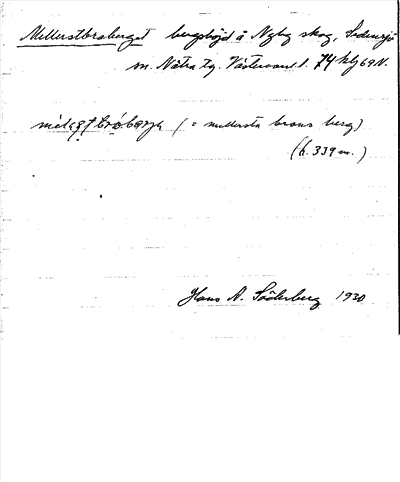 Mellerstbroberget bergshöjd å Nyby skog, Sidensjö
sn. Nätra tg. Västernorrl. l. 74 69N.
(= mellersta brons berg)
(h. 339 m.)
Hans A. Söderberg 1930